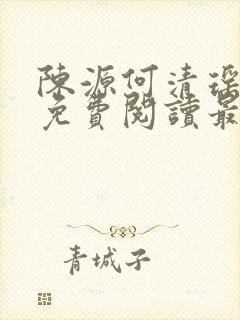 陳源何清瑤
免費閱讀最
青城子